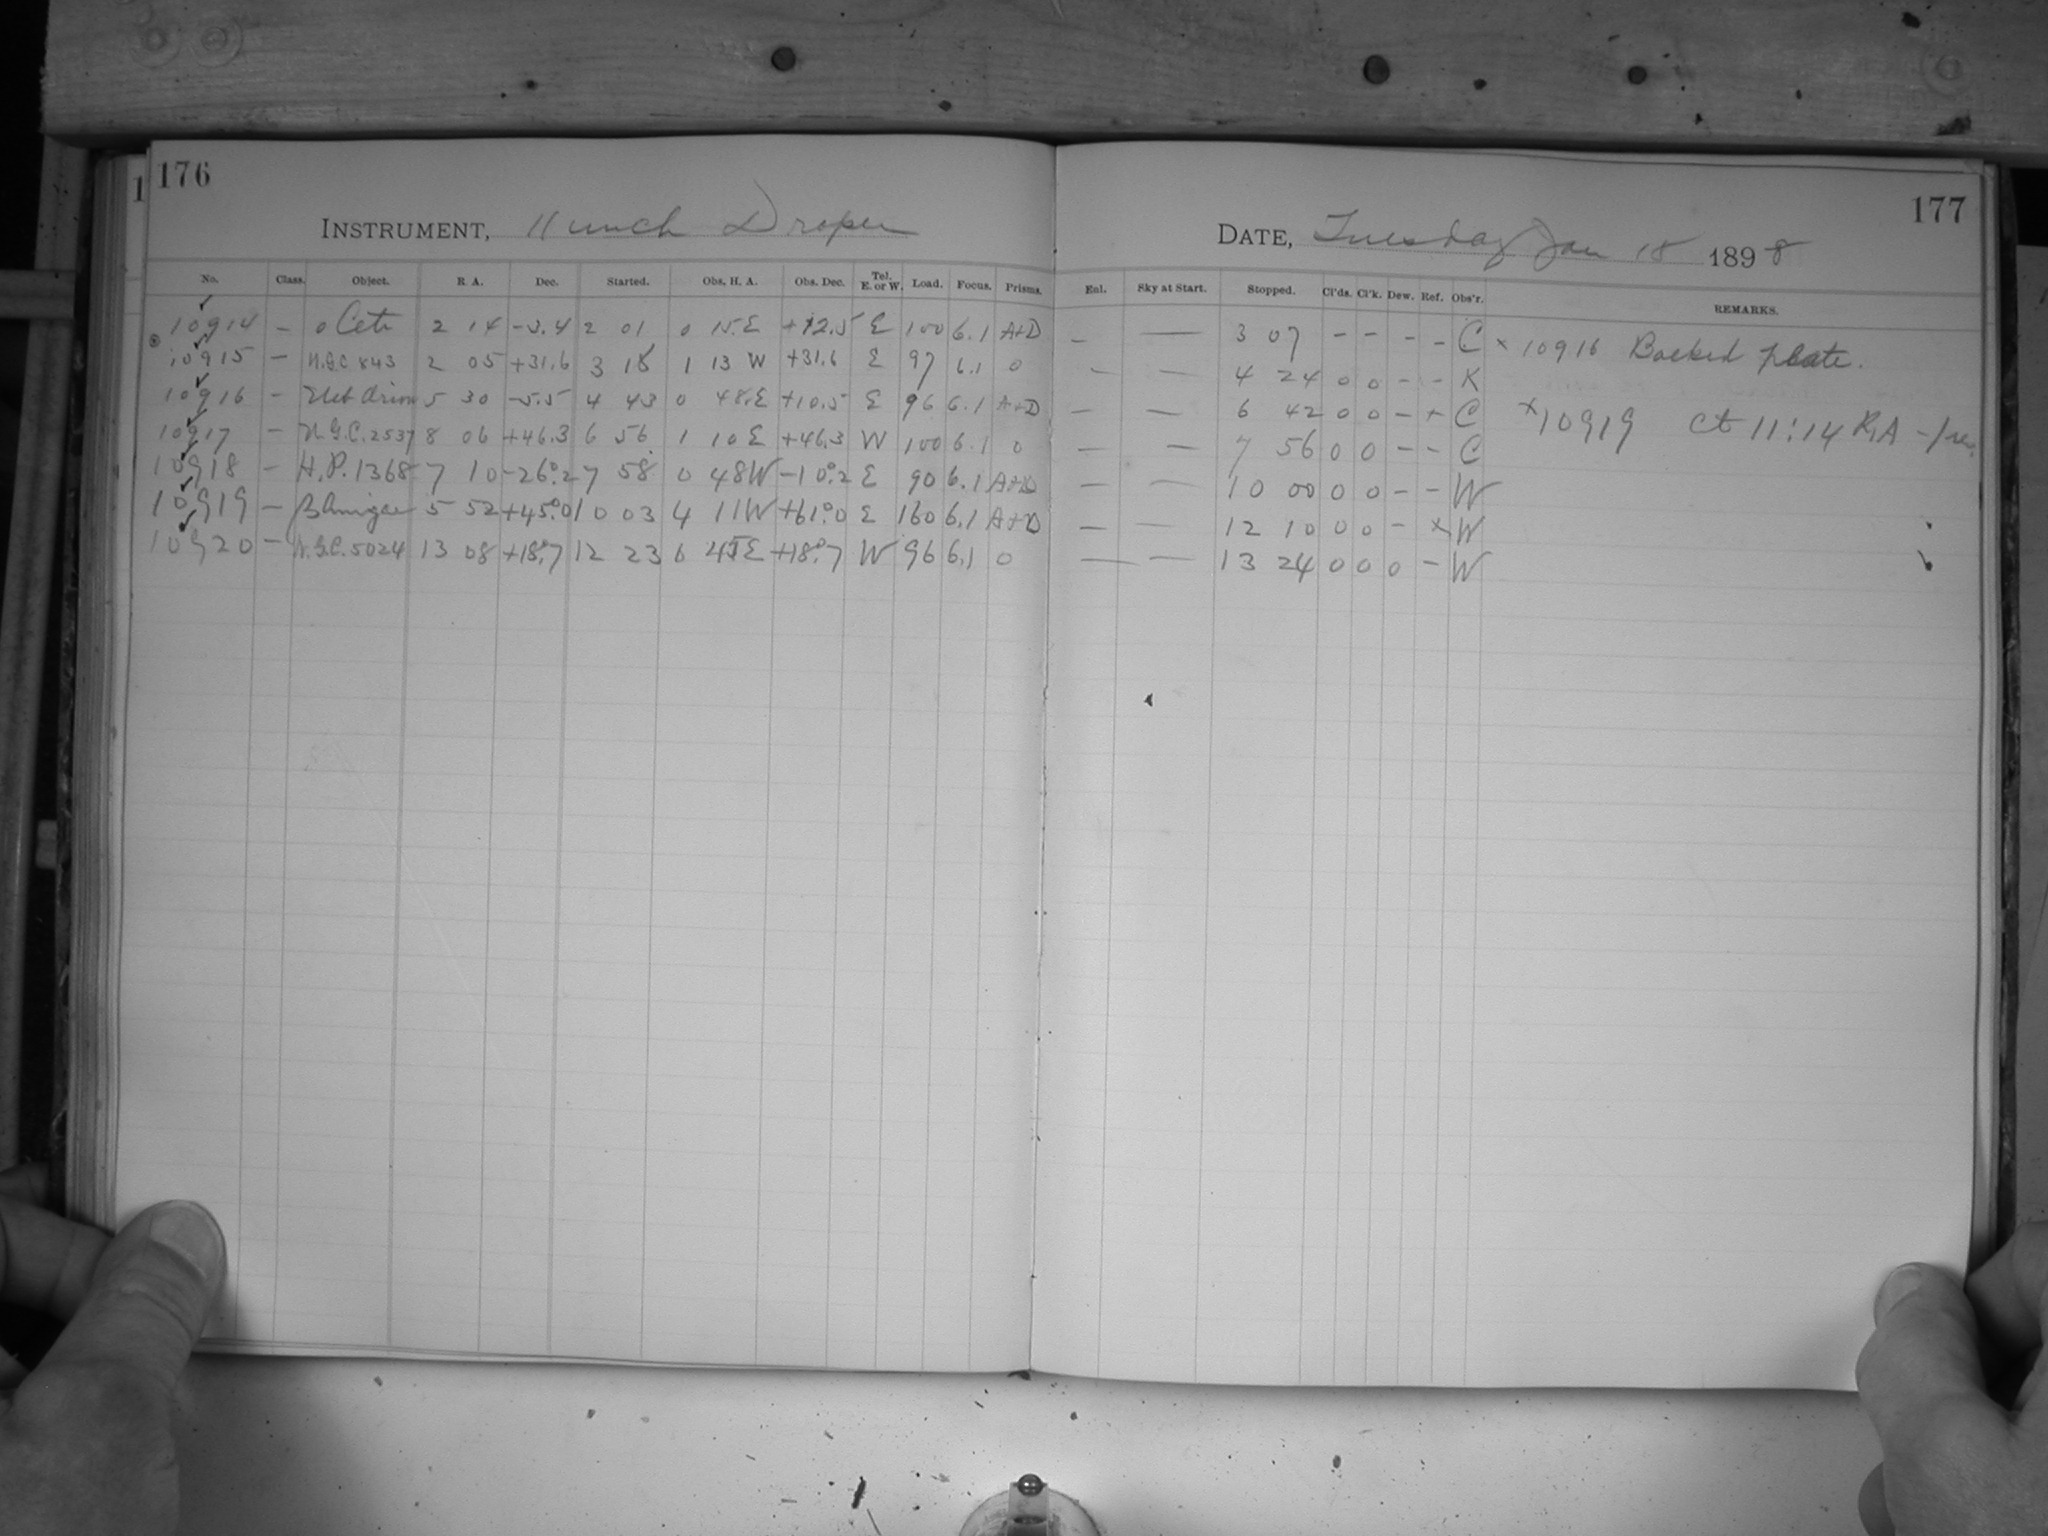 1 176
INSTRUMENT, 11 inch Draper
No. Class. Object. R. A. Dec. Started. Obs. H. A. Obs. Dec. Tel. E. or W. Load. Focus. Prisms.
10914 - o Ceti 2 14 -3.4 2 01 0 15 E +12.5 E 100 6.1 A+D
10915 - N.G.C 843 2 05 +31.6 3 18 1 13 W +31.6 E 97 6.1 0
10916 - Neb Orion 5 30 -5.5 4 43 0 48 E +10.5 E 96 6.1 A+D
10917 - N.G.C. 2537 8 06 +46.3 6 56 1 10 E +46.3 W 100 6.1 0
10918 - H.P. 1368 7 10 -26°.2 7 58 0 48 W -10°.2 E 90 6.1 A+D
10919 - β Aurigae 5 52 +45°.0 10 03 4 11 W +61°.0 E 160 6.1 A+D
10920 - N.G.C. 5024 13 08 +18°.7 12 23 0 45 E +18°.7 W 96 6.1 0
177
DATE, Tuesday Jan 18 1898
Enl. Sky at Start. Stopped. Cl'ds. Cl'k. Dew. Ref. Obs'r. REMARKS.
- — 3 07 - - - - C × 10916 Backed plate.
- — 4 24 0 0 - - K
- — 6 42 0 0 - + C × 10919 at 11:14 R.A - 1 rev.
- — 7 56 0 0 - - C
- — 10 00 0 0 - - W
- — 12 10 0 0 - × W
— — 13 24 0 0 0 - W